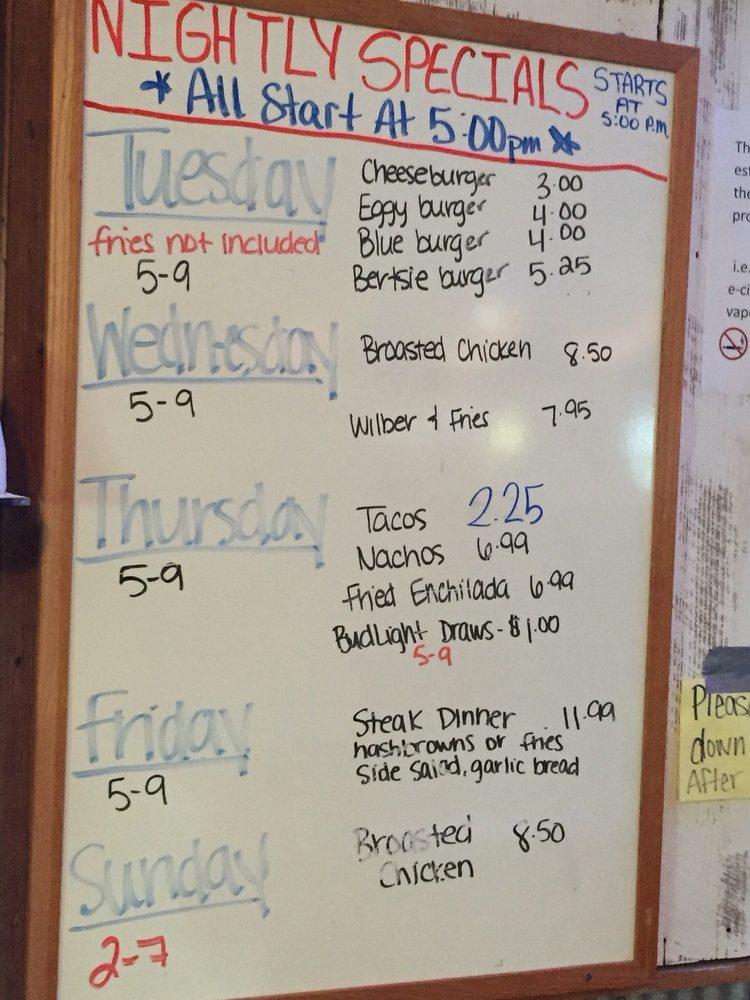 NIGHTLY SPECIALS
* All Start At 5:00pm *
STARTS
AT
5:00 P.M.
Tuesday
fries not included
5-9
Cheeseburger 3.00
Eggy burger 4.00
Blue burger 4.00
Bertsie burger 5.25
Wednesday
5-9
Broasted Chicken 8.50
Wilber & Fries 7.95
Thursday
5-9
Tacos 2.25
Nachos 6.99
Fried Enchilada 6.99
BudLight Draws - $1.00
5-9
Friday
5-9
Steak Dinner 11.99
hashbrowns or fries
Side Salad, garlic bread
Sunday
2-7
Broasted 8.50
Chicken
Th
est
the
pro
i.e.
e-ci
vap
Pleas
down
After